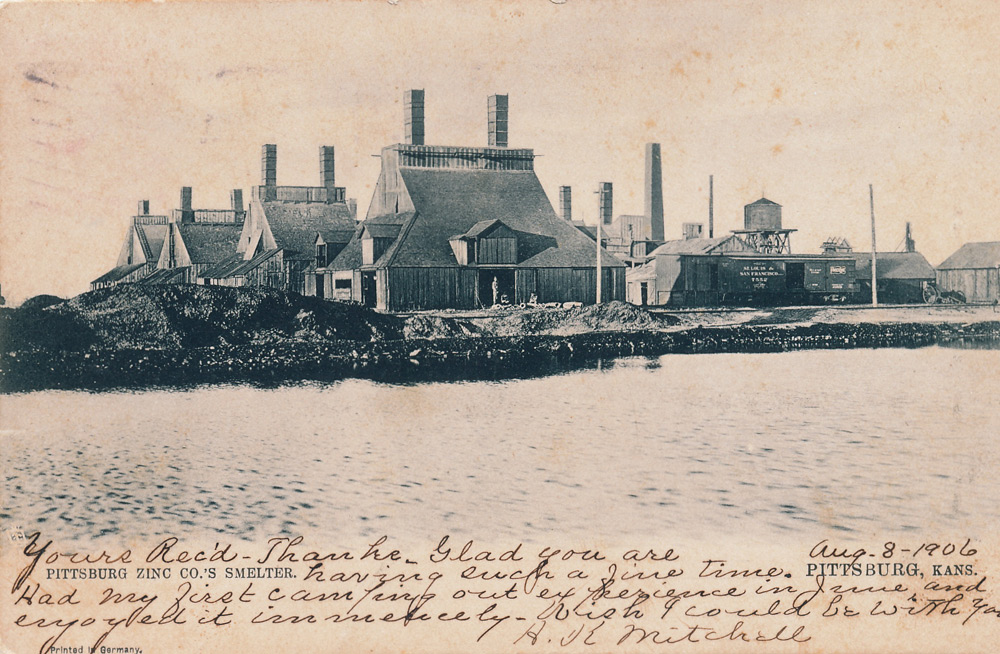 ST. LOUIS &
SAN FRANCISCO
Yours Rec'd - Thanks. Glad you are Aug. 8 - 1906
PITTSBURG ZINC CO.'S SMELTER. having such a fine time. PITTSBURG, KANS.
Had my first camping out experience in June and
enjoyed it immencely - Wish I could be with you
H. K Mitchell
Printed in Germany.